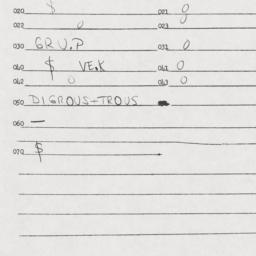 020 $ 021 0
022 0 023 0
030 GRU.P 031 0
040 $ VE.K 041 0
042 0 043 0
050 DIGROUS-TROUS
060 —
070 $